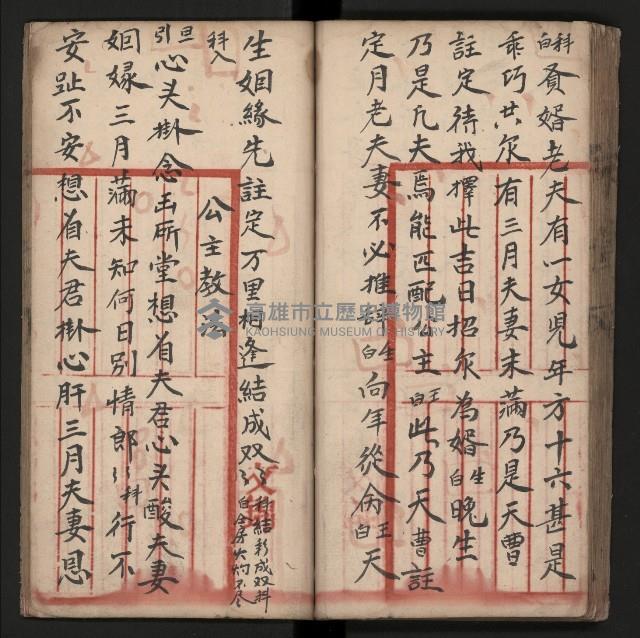 科白 賢婿老夫有一女児年方十六甚是
乖巧共尔有三月夫妻未滿乃是天曹
註定待我擇此吉日招尔為婿 生白 晚生
乃是凡夫焉能匹配公主 王白 此乃天曹註
定月老夫妻不必推 生白 向年從命 王白 天
生姻緣先註定万里相逢結成双〻 科結彩成双科白仝房火灼不尽
科入 公主教法
旦引 心头掛念出所堂想着夫君心头酸夫妻
姻緣三月滿未知何日別情郎〻 科 行不
安趾不安想着夫君掛心肝三月夫妻恩
高雄市立歷史博物館
KAOHSIUNG MUSEUM OF HISTORY